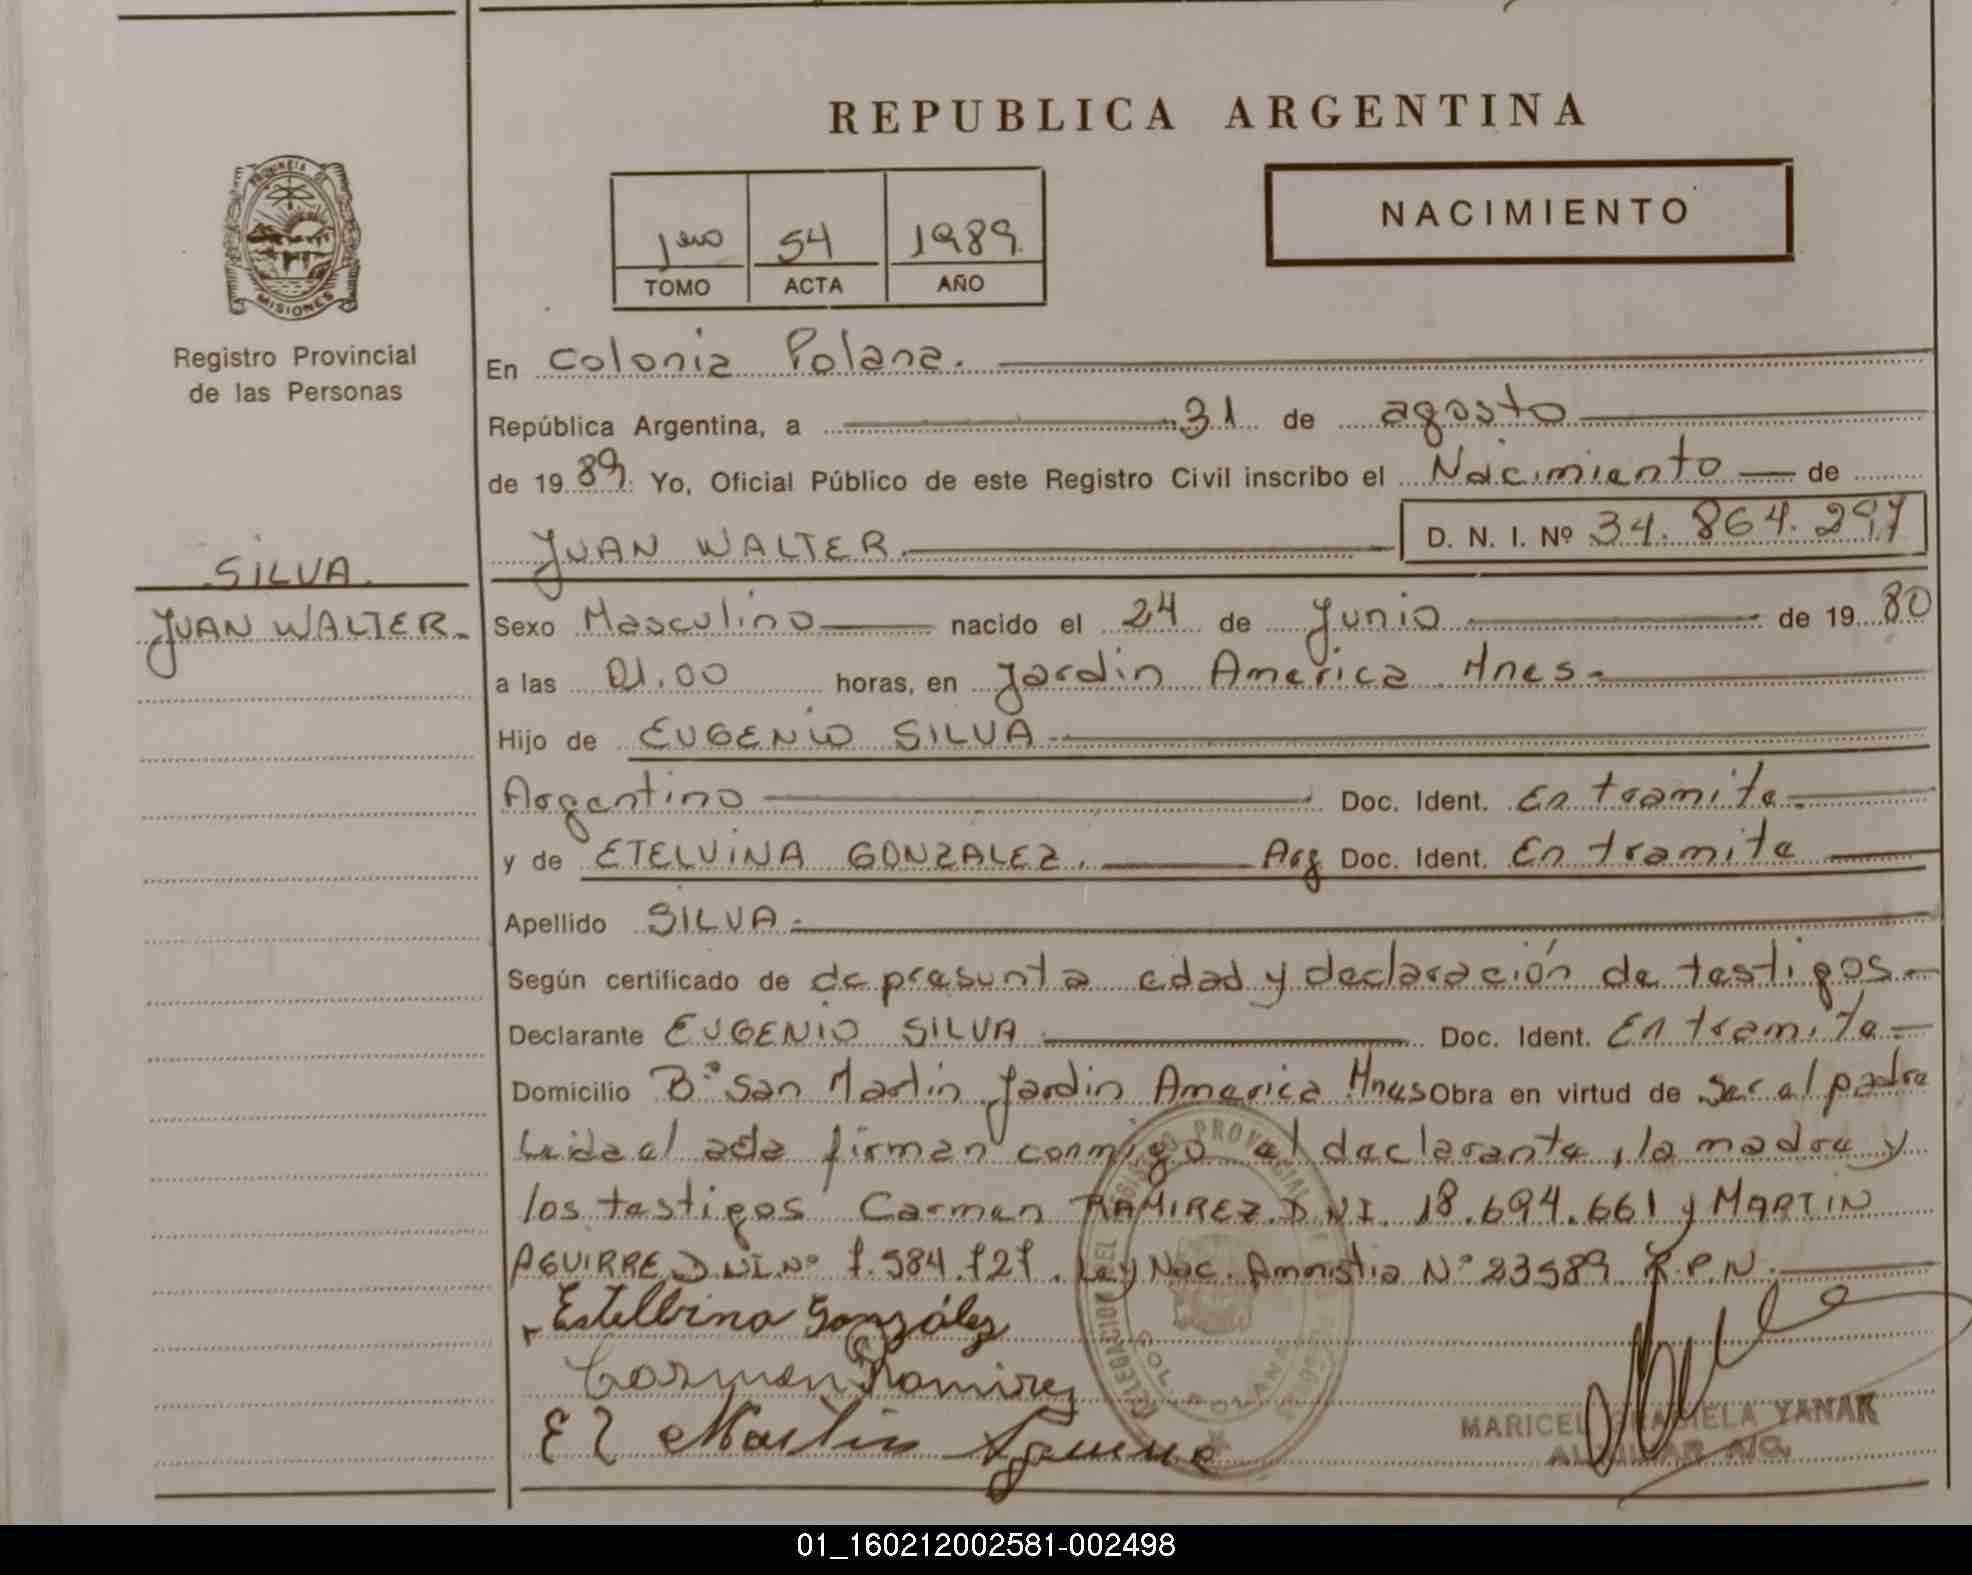 REPUBLICA ARGENTINA
PROVINCIA DE
MISIONES
Registro Provincial
de las Personas
1ero 54 1989
TOMO ACTA AÑO
NACIMIENTO
En Colonia Polana.
República Argentina, a 31 de agosto
de 1989 Yo, Oficial Público de este Registro Civil inscribo el Nacimiento de
JUAN WALTER. D. N. I. Nº 34.864.297
SILVA.
JUAN WALTER.
Sexo Masculino nacido el 24 de Junio de 1980
a las 01.00 horas, en Jardin America Mnes.
Hijo de EUGENIO SILVA
Argentino Doc. Ident. En tramite.
y de ETELVINA GONZALEZ. Arg Doc. Ident. En tramite
Apellido SILVA.
Según certificado de de presunta edad y declaración de testigos.
Declarante EUGENIO SILVA Doc. Ident. En tramite
Domicilio Bº San Martin Jardin America Mnes Obra en virtud de ser el padre
Leida el acta firman conmigo el declarante, la madre y
los testigos Carmen RAMIREZ D.N.I. 18.694.661 y MARTIN
AGUIRRE D.N.I.Nº 7.584.727. Ley Nac. Amnistia Nº 23589 R.P.N.
Estelbina González
Carmen Ramirez
E Z Martin Aguirre
DELEGACION DEL REGISTRO PROVINCIAL DE LAS PERSONAS
COL. POLANA
MARICEL GRACIELA YANAK
01_160212002581-002498